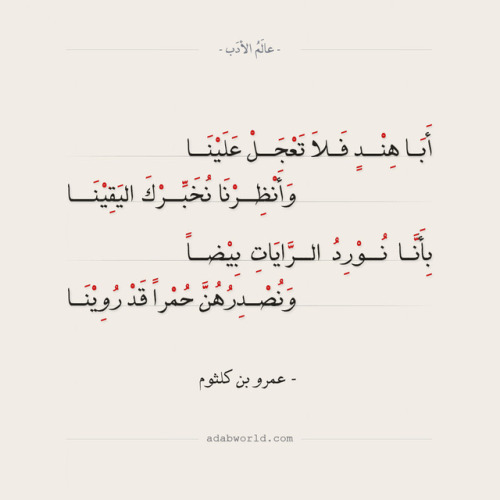 - عالَمُ الأدَب -
أَبَا هِنْدٍ فَلاَ تَعْجَلْ عَلَيْنَا
وَأَنْظِرْنَا نُخَبِّرْكَ اليَقِيْنَا
بِأَنَّا نُوْرِدُ الرَّايَاتِ بِيْضاً
وَنُصْدِرُهُنَّ حُمْراً قَدْ رُوِيْنَا
- عمرو بن كلثوم
adabworld.com